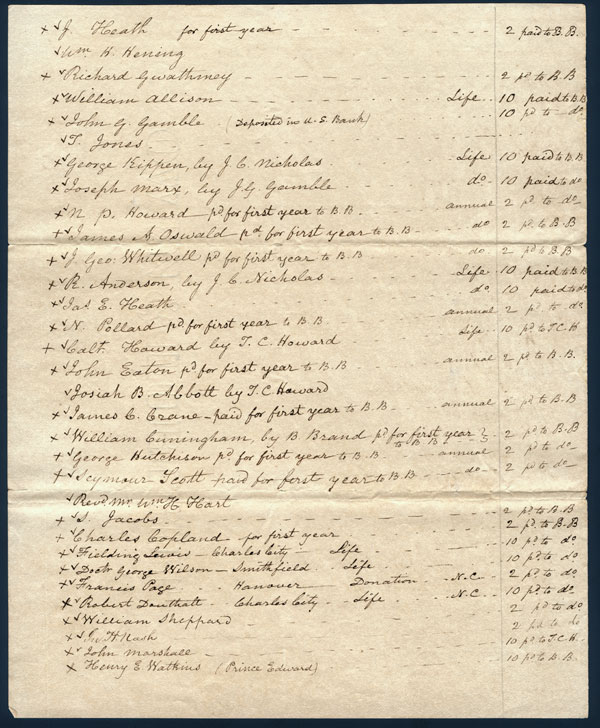 x J. Heath for first year - - - - 2 paid to B. B.
Wm H. Hening
x Richard Gwathmey - - - - 2 pd to B. B
x William Allison - - - - Life 10 paid to B B
x John G. Gamble (Deposited in U. S. Bank) - - - 10 pd to do
T. Jones - - - -
x George Kippen, by J. C. Nicholas - - - Life 10 paid to B. B
x Joseph Marx, by J. G. Gamble - - - do 10 paid to do
x N. P. Howard pd for first year to B. B. - - annual 2 pd to do
x James A. Oswald pd for first year to B. B. - - do 2 pd to B. B
x J. Geo. Whitwell pd for first year to B. B - - do 2 pd to B. B
x R. Anderson, by J. C. Nicholas - - - Life 10 paid to B. B
x Jas E. Heath - - - do 10 paid to do
x N. Pollard pd for first year to B. B - - annual 2 pd to do
x Calt. Howard by T. C. Howard - - - Life 10 pd to T. C. H
x John Eaton pd for first year to B. B - - annual 2 pd to B. B.
Josiah B. Abbott by T. C. Howard
x James C. Crane - paid for first year to B. B - - annual 2 pd to B. B
x William Cuningham, by B Brand pd for first year to B. B 2 pd to B. B
x George Hutchison pd for first year to B. B annual 2 pd to do
x Seymour Scott paid for first year to B. B - - do - - 2 pd to do
Revd Mr. Wm H. Hart
x S. Jacobs - - - - 2 pd to B. B
x Charles Copland for first year - - - 2 pd to B. B
x Fielding Lewis - Charles City - Life - - 10 pd to do
x Doctr George Wilson - Smithfield - Life - - 10 pd to do
x Francis Page - - Hanover Donation - N. C. - 2 pd to do
x Robert Douthatt - Charles City - Life - N. C. - 10 pd to do
x William Sheppard - - - 2 pd to do
x H Nash - - - 2 pd to do
x John Marshall - - - 10 pd to T. C. H.
x Henry E. Watkins (Prince Edward) - - - 10 pd to B. B.